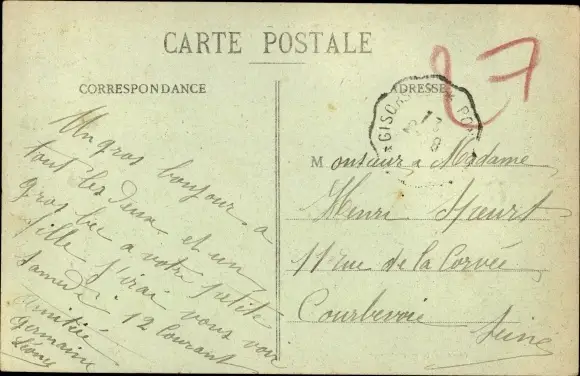 CARTE POSTALE
CORRESPONDANCE
ADRESSE
27
*GISORS
Un gros bonjour a
tout les deux et un
gros bec a votre petite
fille j'irai vous voir
samedi 12 Courant
amitiée
Germaine
Monsieur & Madame
Henri
11 rue de la Corvée
Courbevoie
Seine